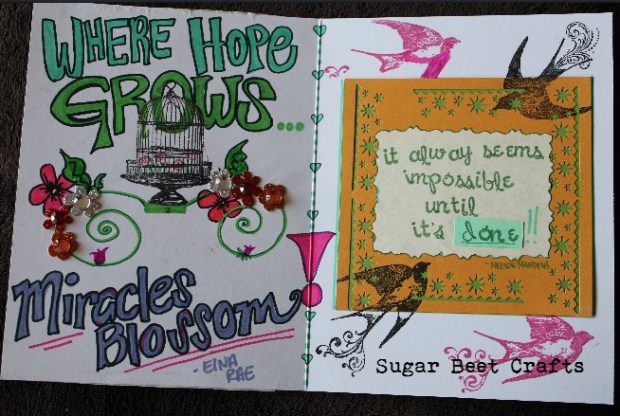 WHERE HOPE
GROWS...
Miracles
Blossom
-EINA
RAE
it alway seems
impossible
until
it's done!!
NELSON MANDELA
Sugar Beet Crafts